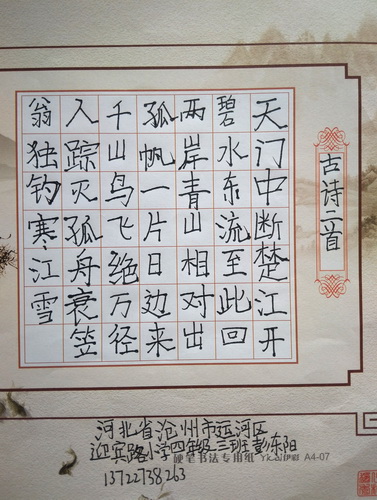 古诗二首
天门中断楚江开
碧水东流至此回
两岸青山相对出
孤帆一片日边来
千山鸟飞绝万径
入踪灭孤舟衰笠
翁独钓寒江雪
河北省沧州市运河区
迎宾路小学四年级三班彭东阳
硬笔书法专用纸 伊彩 A4-07
13722738263